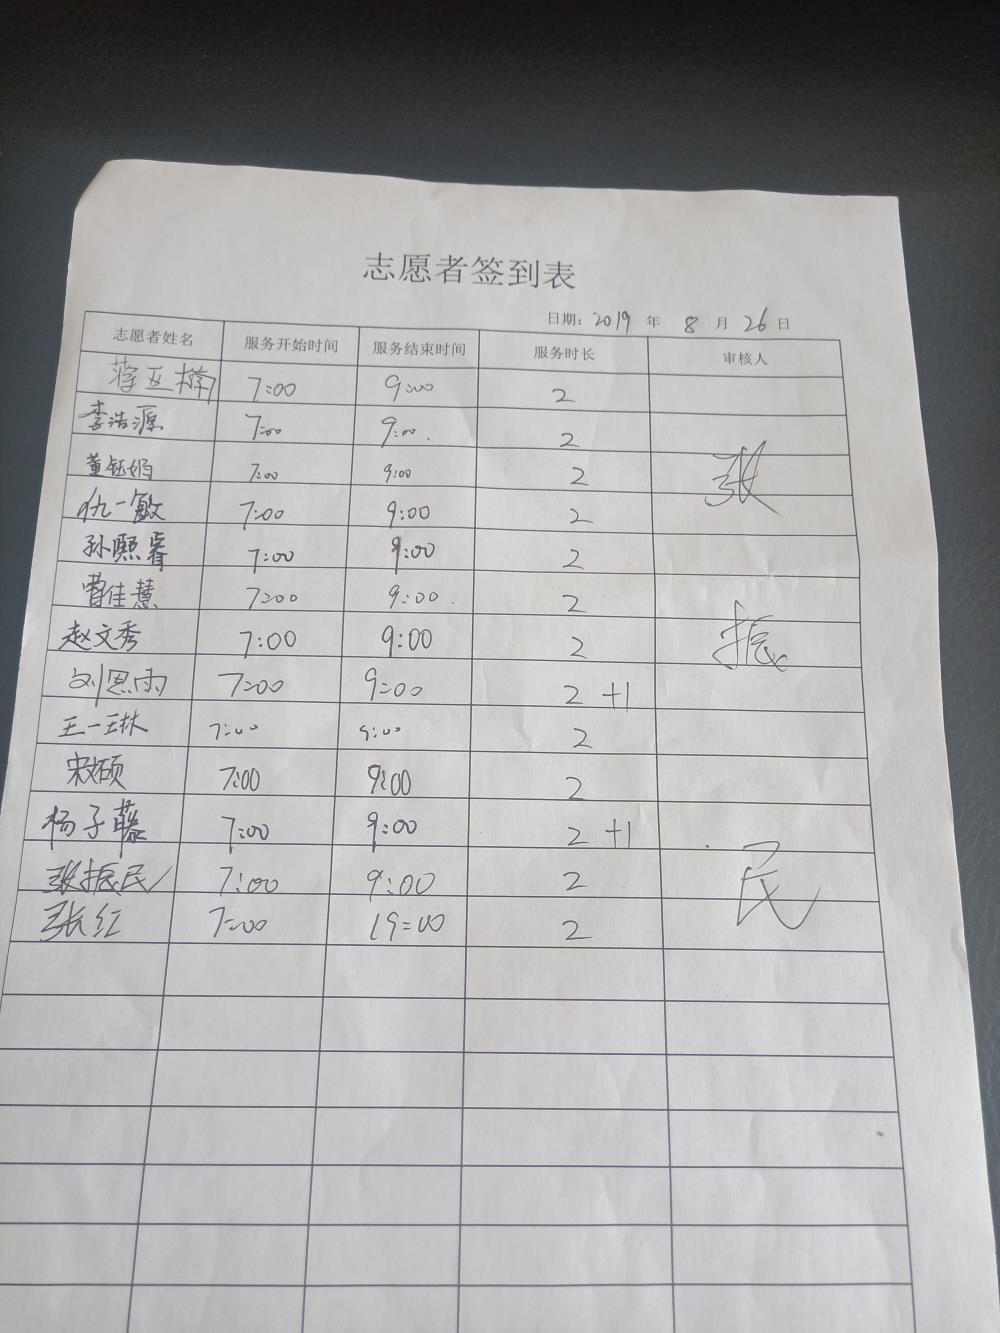 志愿者签到表
日期: 2019 年 8 月 26 日
志愿者姓名 服务开始时间 服务结束时间 服务时长 审核人
7:00 9:00 2
李浩源 7:00 9:00. 2
董钰娟 7:00 9:00 2
仇一敏 7:00 9:00 2
孙熙睿 7:00 9:00 2
曹佳慧 7:00 9:00. 2
赵文秀 7:00 9:00 2
刘恩雨 7:00 9:00 2 +1
王一琳 7:00 9:00 2
宋硕 7:00 9:00 2
杨子藤 7:00 9:00 2 +1
张振民 7:00 9:00 2
张红 7:00 19:00 2
张振民